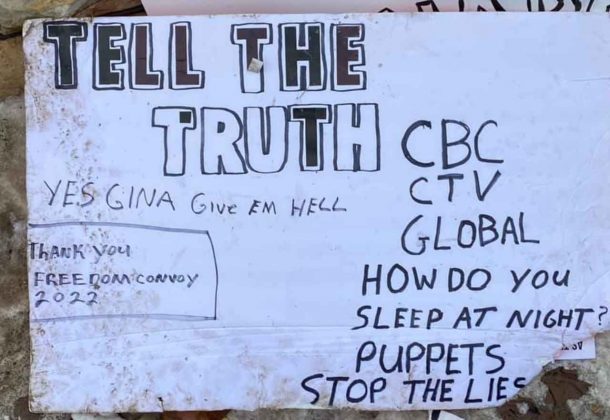 TELL THE
TRUTH
CBC
CTV
GLOBAL
YES GINA GIVE EM HELL
THANK YOU
FREEDOM CONVOY
2022
HOW DO YOU
SLEEP AT NIGHT?
PUPPETS
STOP THE LIES